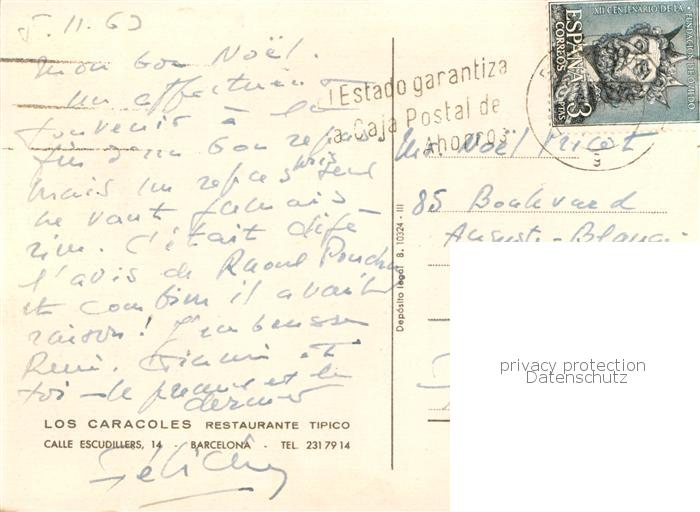 5.11.63
Mon bon Noël.
Un affectueux
souvenir à la
fin d'un bon repas
mais un repas pris seul
ne vaut jamais
rien. C'était
l'avis de Raoul Ponchon
et combien il avait
raison! J'embrasse
René. et
toi - le premier et le
dernier
LOS CARACOLES RESTAURANTE TIPICO
CALLE ESCUDILLERS, 14 - BARCELONA - TEL. 2317914
Depósito legal B. 10324-III
El Estado garantiza
la Caja Postal de
Ahorros
ESPAÑA
CORREOS
3 PTAS
XII CENTENARIO DE LA
FUNDACION DE OVIEDO
M. Noël Pricot
85 Boulevard
Auguste-Blanqui
privacy protection
Datenschutz